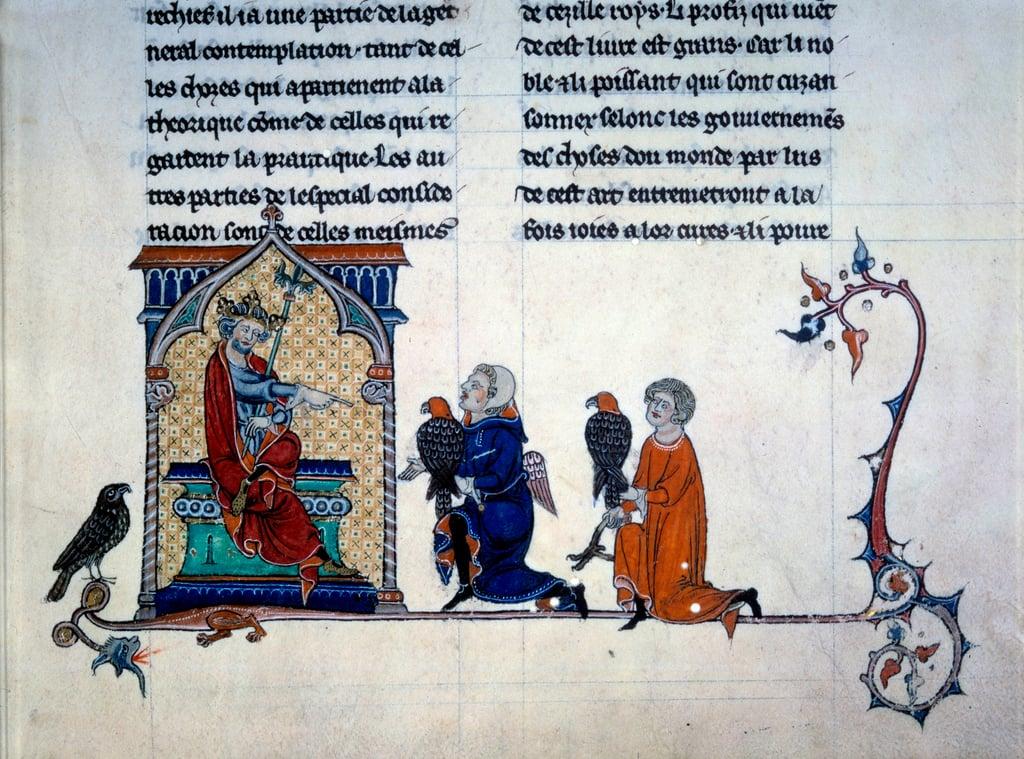 rechies il i a une partie de la ge
neral contemplation · tant de cel
les choses qui apartienent a la
theorique cōme de celles qui re
gardent la prautique · Les au
tres parties de lespecial conside
racion sont de celles meismes
de cezille roys · Li profiz qui uiēt
de cest liure est grans · Car li no
ble ⁊ li poissant qui sont cuzan
sonnex selonc les gouuernemēs
des choses dou monde par lus
de cest art entremetront a la
fois ioies a lor cures · ⁊ li poure